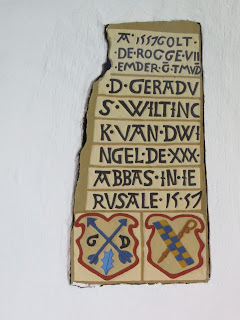 A · 1557 GOLT ·
· DE · ROGGE · VII
· EMDER · G̅ · TMVD
· D · GERADV
S · WILTINC
K · VAN · DWI
NGEL · DE · XXX ·
ABBAS · IN · IE
RVSALE · 15 · 57
G D